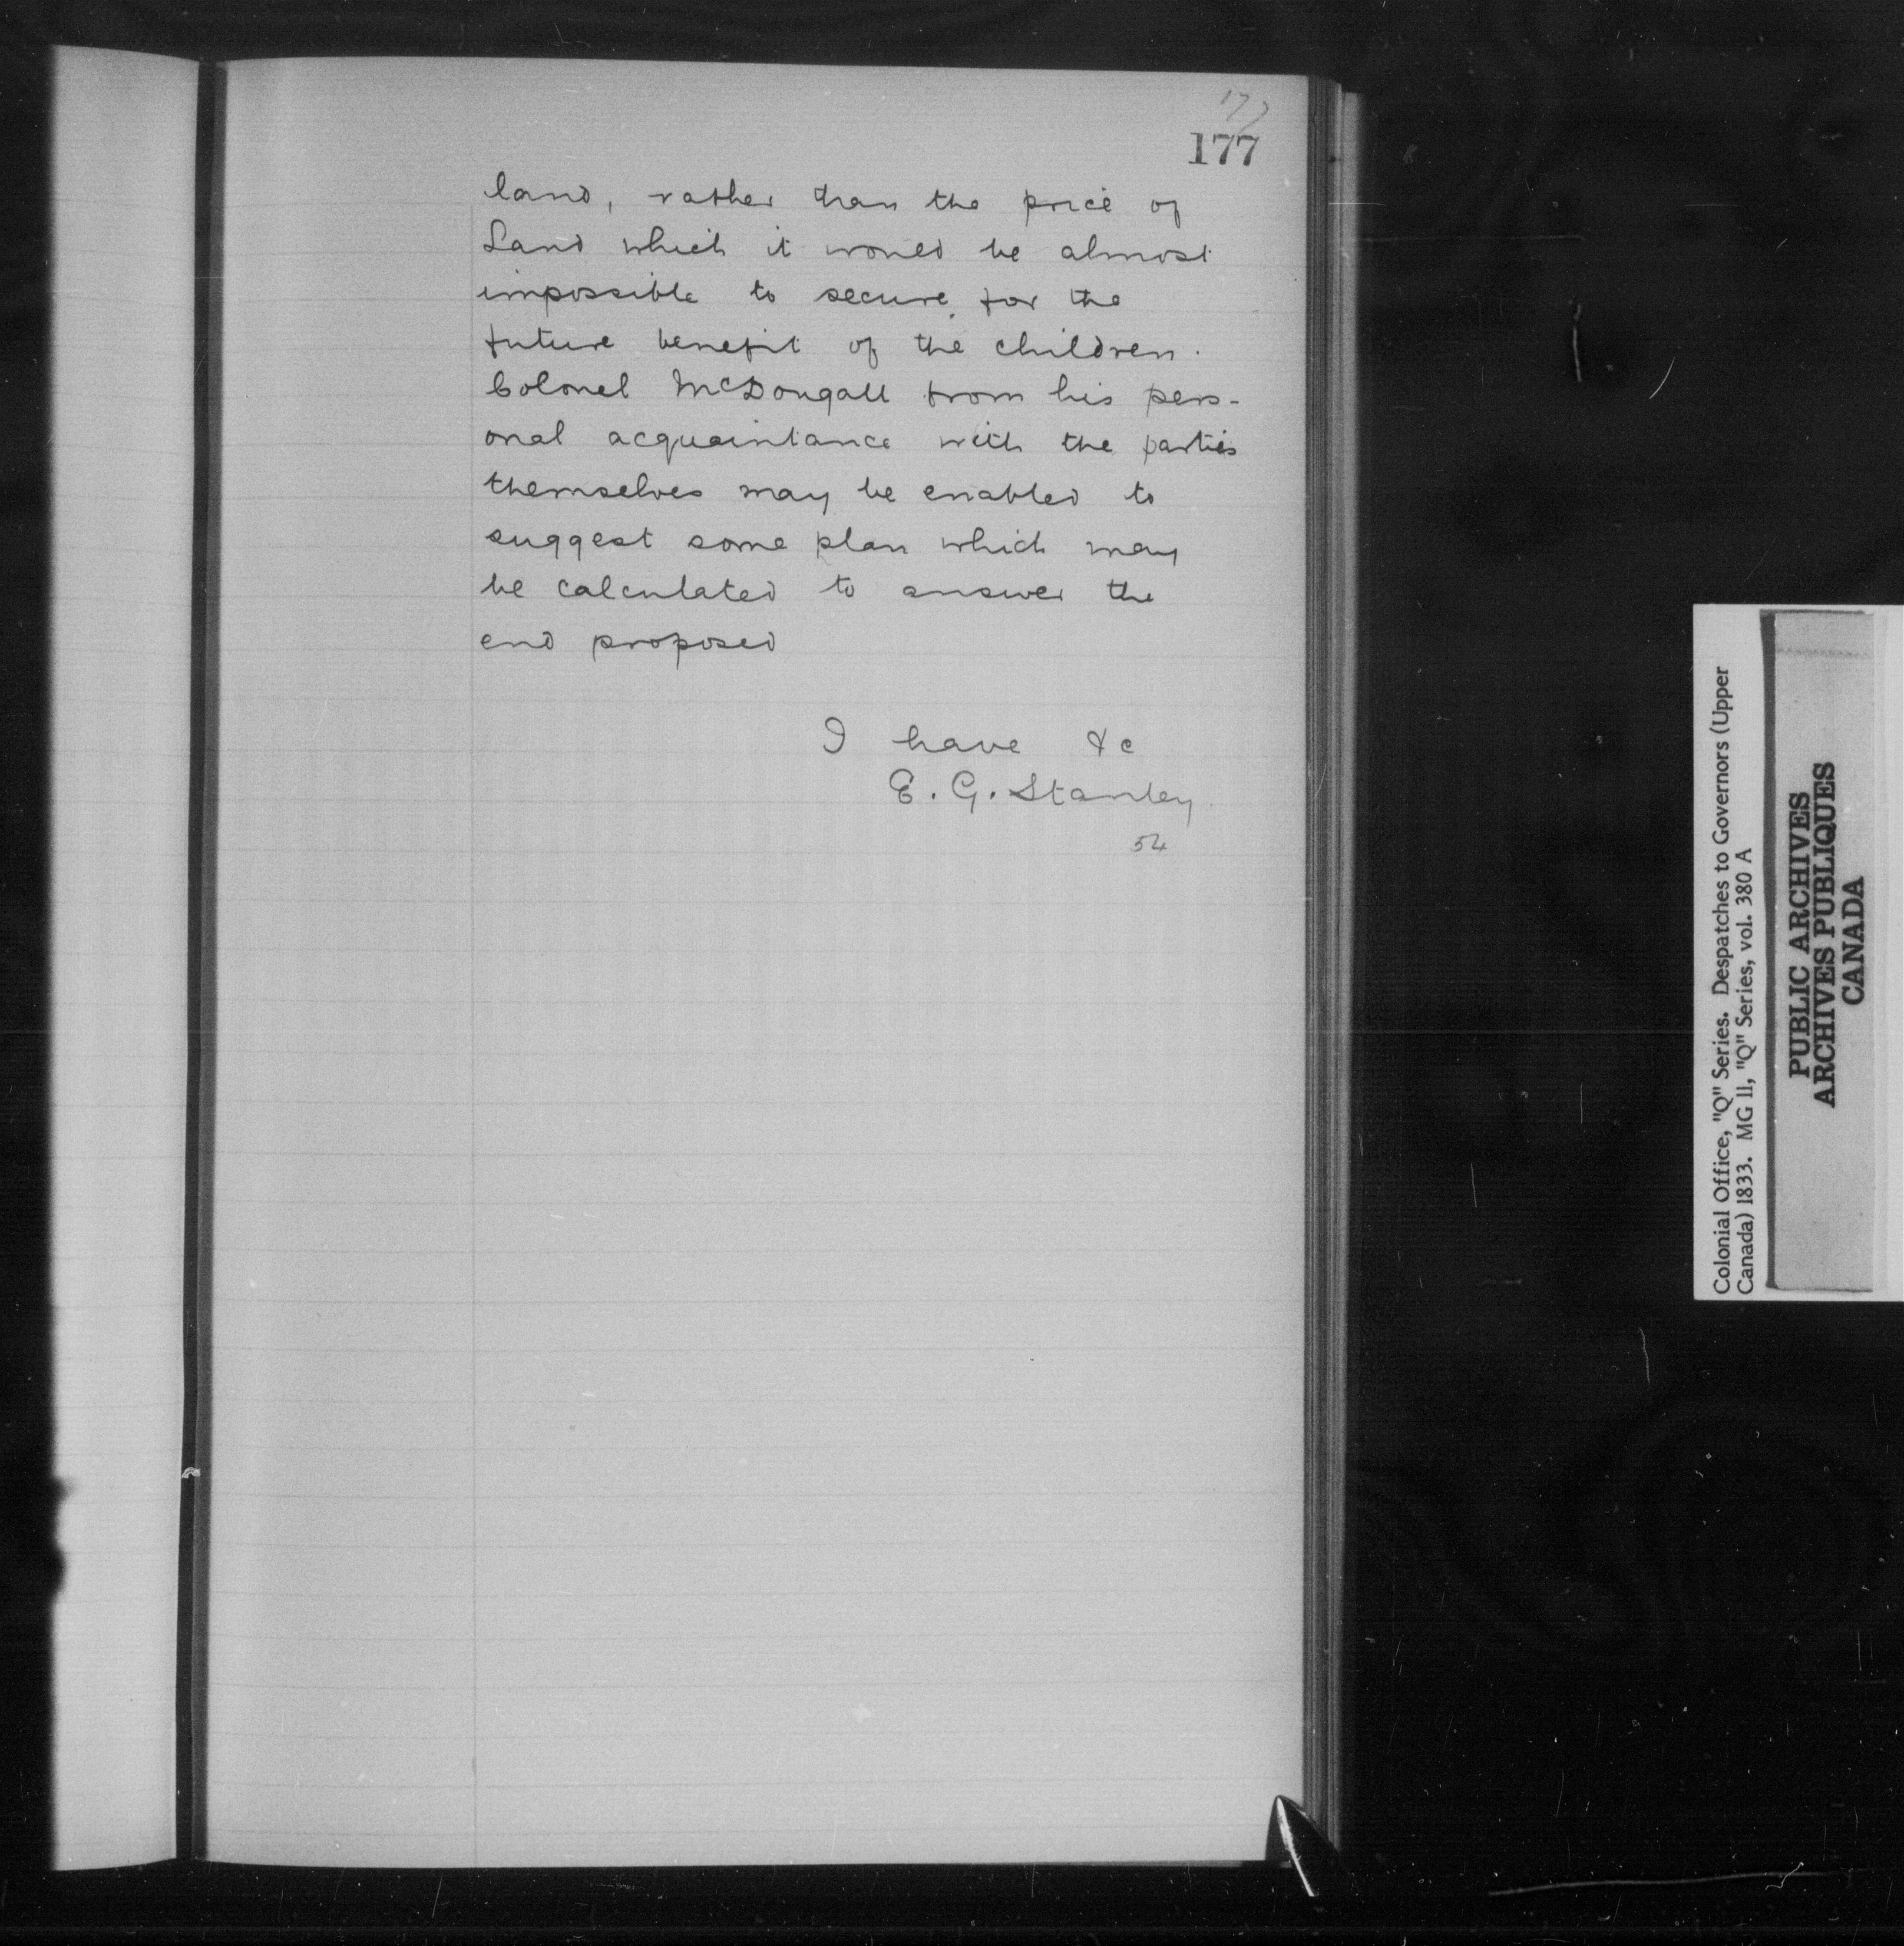 177
177
land, rather than the price of
Land which it would be almost
impossible to secure for the
future benefit of the children.
Colonel McDougall from his pers-
onal acquaintance with the parties
themselves may be enabled to
suggest some plan which may
be calculated to answer the
end proposed
I have &c
E. G. Stanley
54
Colonial Office, "Q" Series. Despatches to Governors (Upper
Canada) 1833. MG 11, "Q" Series, vol. 380 A
PUBLIC ARCHIVES
ARCHIVES PUBLIQUES
CANADA